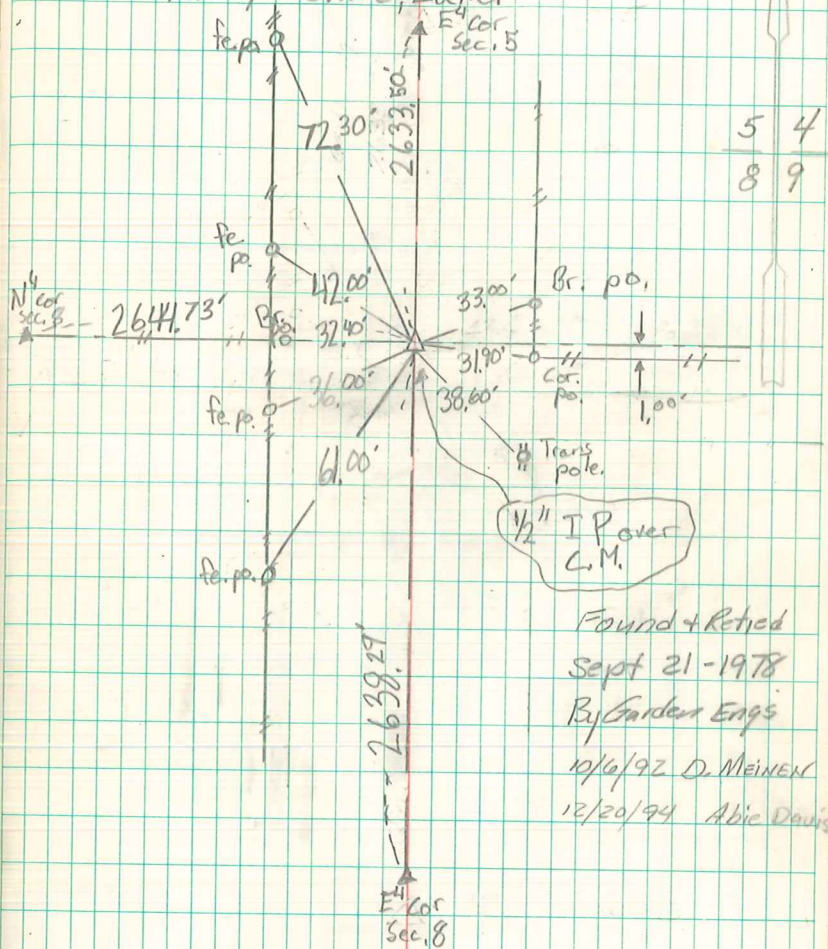 E⁴ cor
Sec. 5
fe.po.
2633.50'
72.30'
5 4
8 9
fe.
po.
42.00'
33.00'
Br. po.
N⁴ cor
Sec. 8
2644.73'
Br.
po.
32.40'
31.90'
Cor.
po.
1.00'
36.00'
38.60'
fe. po.
Trans
pole.
61.00'
1/2" I P over
C.M.
fe. po.
Found + Retied
Sept 21-1978
By Garden Engs
2638.29'
10/6/92 D. MEINEN
12/20/94 Abie Davis
E⁴ cor
Sec. 8